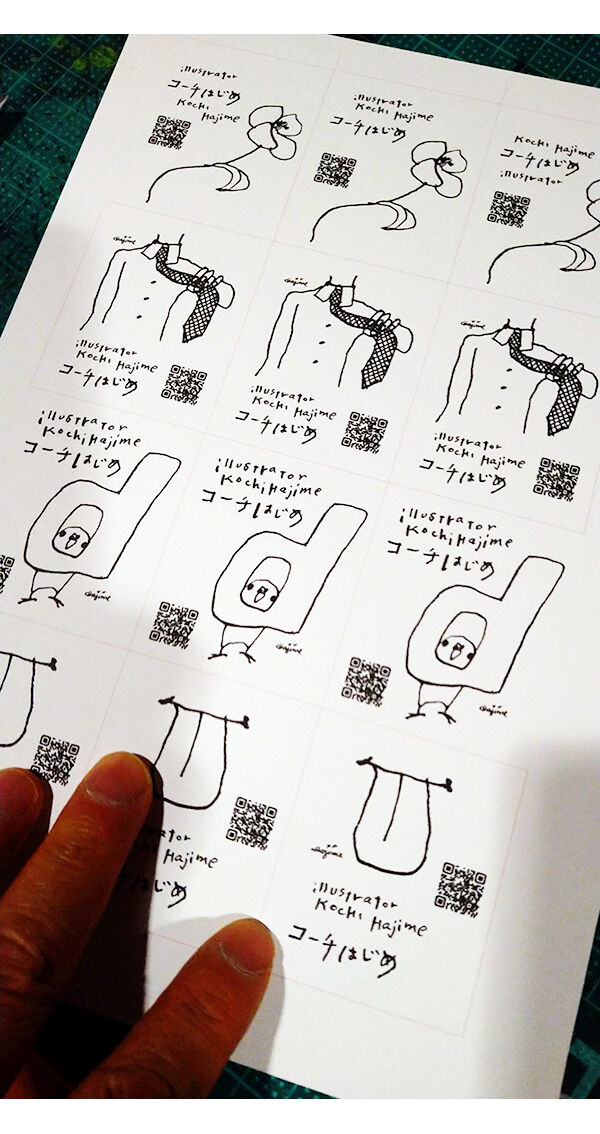 illustrator
コーチはじめ
Kochi
Hajime
illustrator
Kochi Hajime
コーチはじめ
Kochi Hajime
コーチはじめ
illustrator
Hajime
illustrator
Kochi Hajime
コーチはじめ
Hajime
illustrator
Kochi Hajime
コーチはじめ
Hajime
illustrator
Kochi Hajime
コーチはじめ
illustrator
KochiHajime
コーチはじめ
Hajime
illustrator
KochiHajime
コーチはじめ
Hajime
illustrator
KochiHajime
コーチはじめ
Hajime
Hajime
コーチはじめ
Hajime
illustrator
Kochi Hajime
コーチはじめ